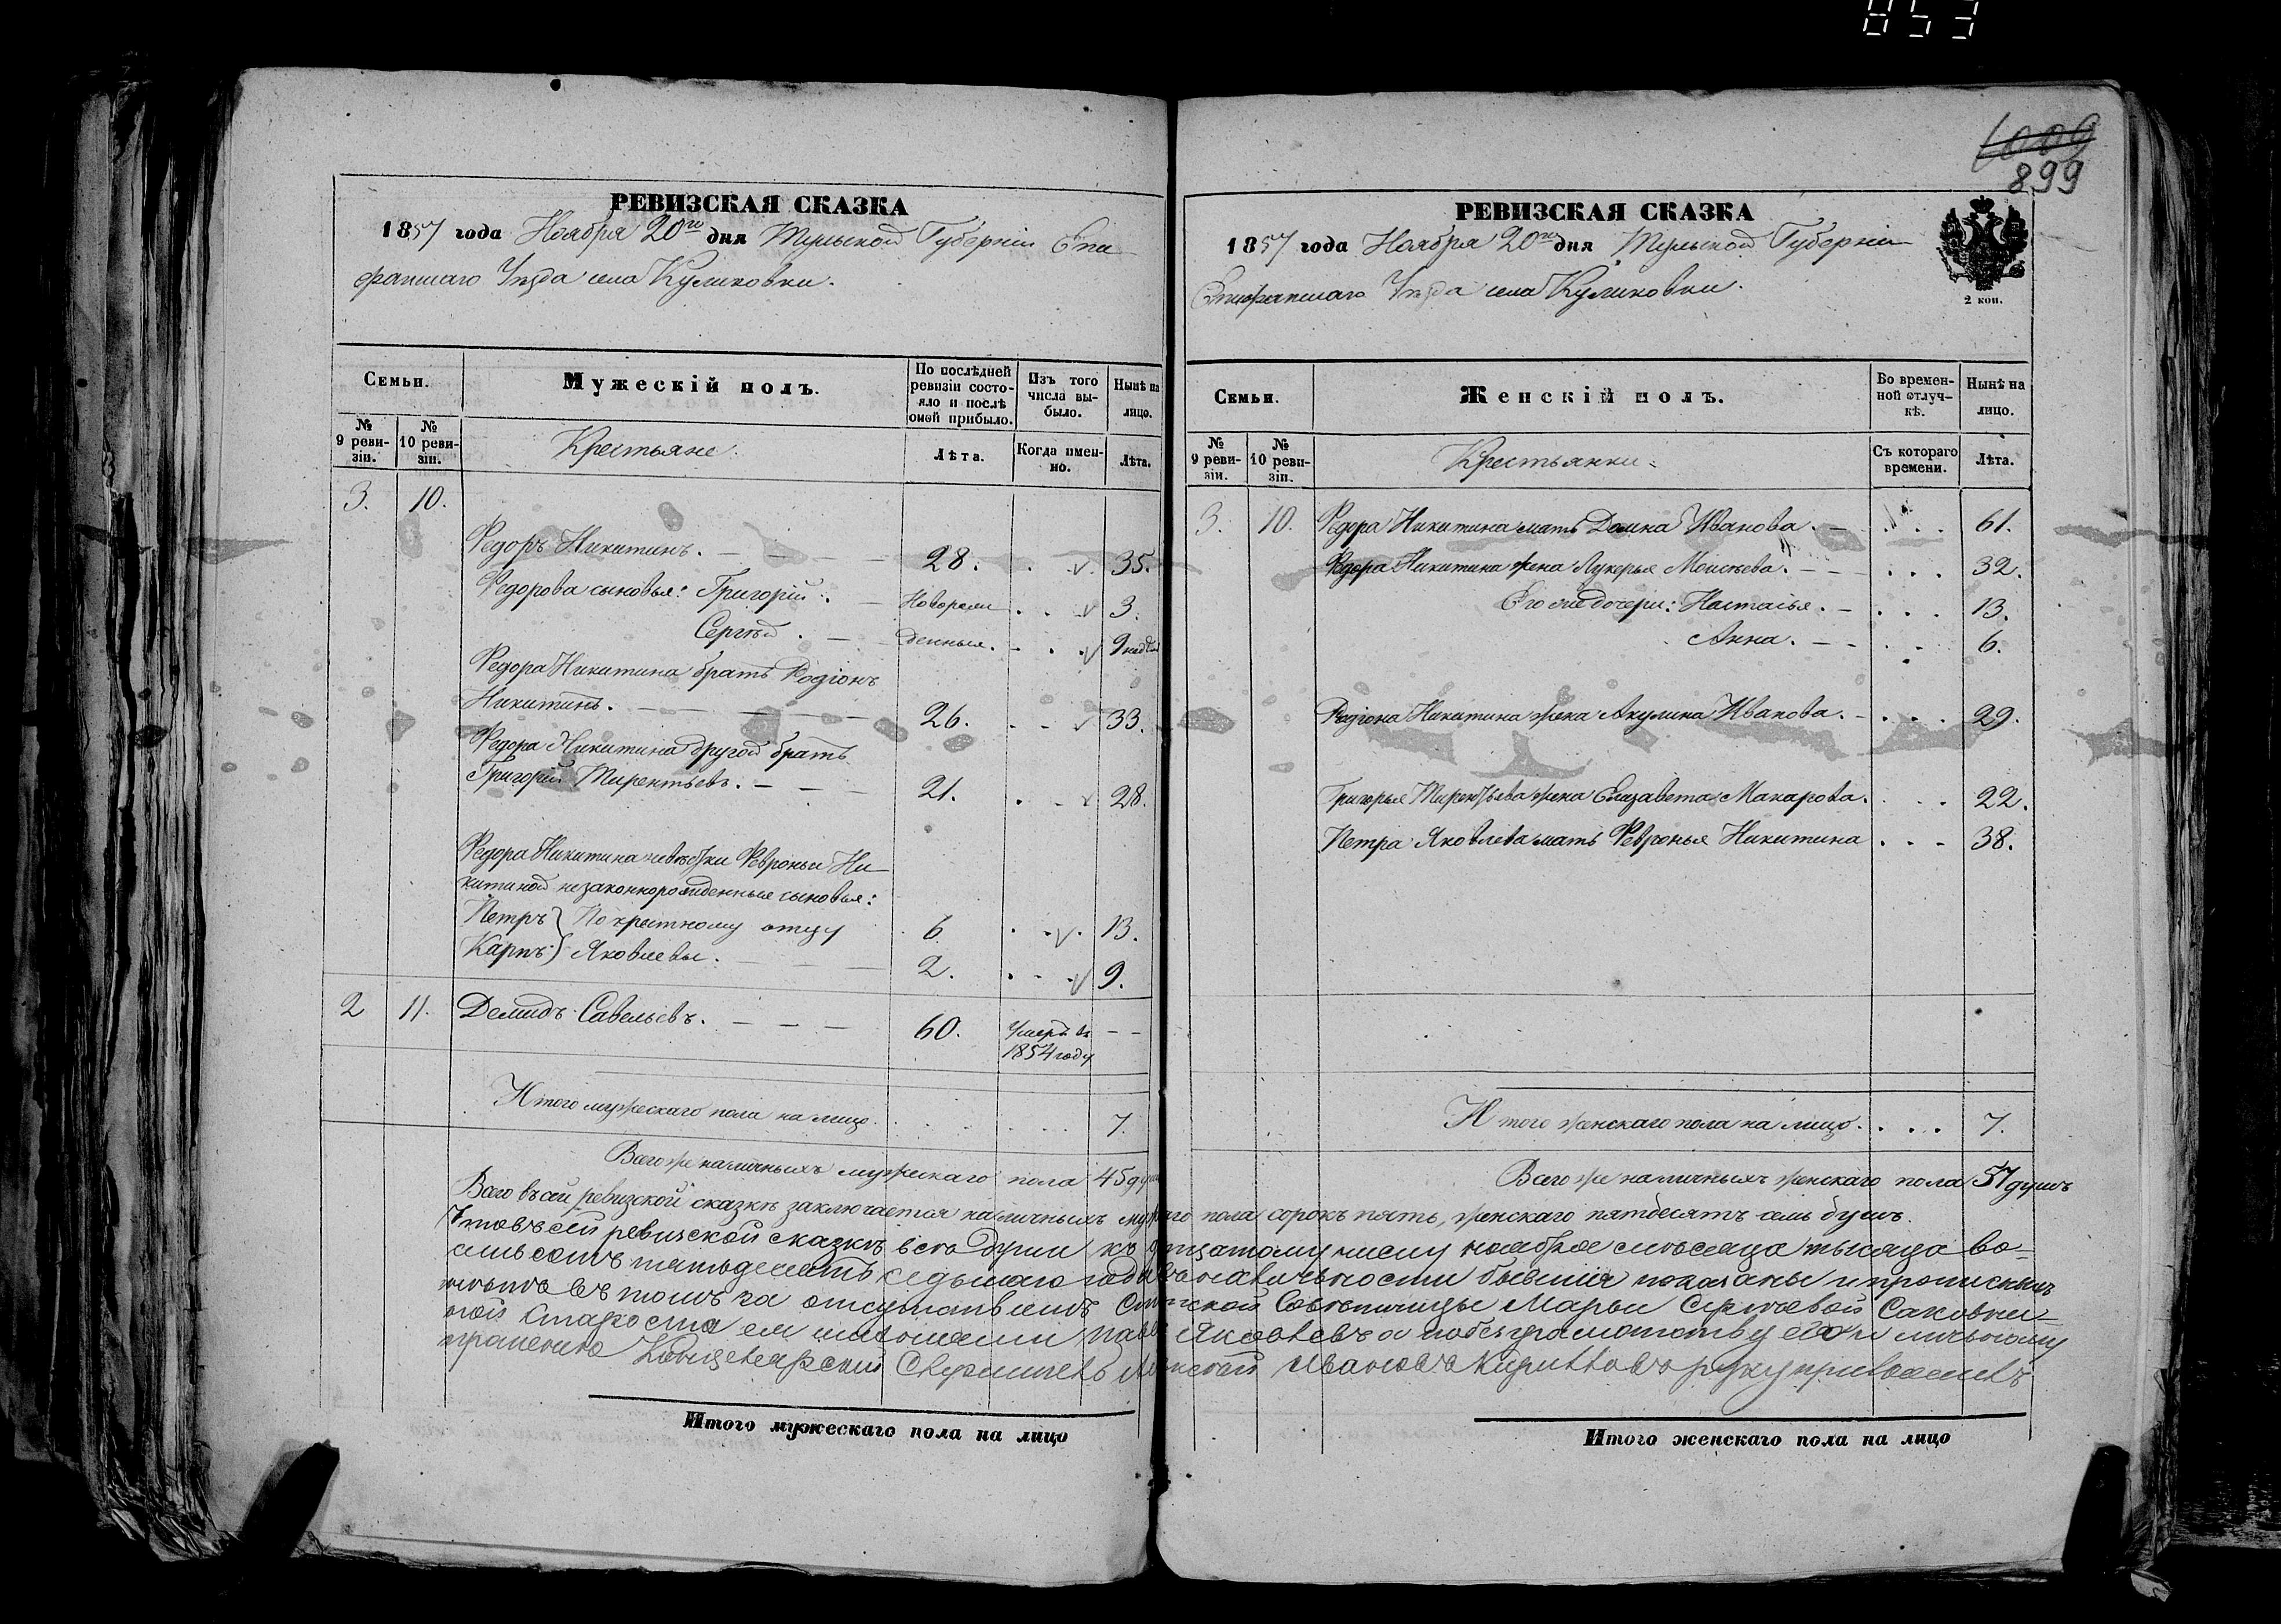 853
1009
899
РЕВИЗСКАЯ СКАЗКА
1857 года Ноября 20го дня Тульской Губерніи Епи
фанскаго Уѣзда села Куликовки.
Семьи.
Мужескій полъ.
По послѣдней ревизіи состояло и послѣ оной прибыло.
Изъ того числа выбыло.
Нынѣ на лицо.
№ 9 ревизіи.
№ 10 ревизіи.
Крестьяне.
Лѣта.
Когда именно.
Лѣта.
3. 10.
Федоръ Никитинъ. 28. 35.
Федорова сыновья: Григорій. Новорож 3.
Сергѣй. денныя. 9 недѣл
Федора Никитина братъ Родіонъ
Никитинъ. 26. 33.
Федора Никитина другой братъ
Григорій Тирентьевъ. 21. 28.
Федора Никитина невѣстки Февроньи Ни
китиной незаконнорожденные сыновья:
Петръ } По крестному отцу 6 13.
Карпъ } Яковлевы. 2. 9.
2 11. Демидъ Савельевъ. 60. Умеръ въ
1854 году
Итого мужескаго пола на лицо 7.
Всего же наличныхъ мужескаго пола 45 душ
РЕВИЗСКАЯ СКАЗКА
1857 года Ноября 20го дня Тульской Губерніи
Епифанскаго Уѣзда села Куликовки.
2 коп.
Семьи.
Женскій полъ.
Во временной отлучкѣ.
Нынѣ на лицо.
№ 9 ревизіи.
№ 10 ревизіи.
Крестьянки.
Съ котораго времени.
Лѣта.
3. 10. Федора Никитина мать Домна Иванова. 61.
Федора Никитина жена Лукерья Моисѣева. 32.
Его же дочери: Настасья. 13.
Анна. 6.
Родіона Никитина жена Акулина Иванова. 29.
Григорья Тирентьева жена Елизавета Макарова. 22.
Петра Яковлева мать Февронья Никитина 38.
Итого женскаго пола на лицо. 7.
Всего же наличныхъ женскаго пола 57 душъ
Всего въ сей ревизской сказкѣ заключается наличныхъ мужскаго пола сорокъ пять, женскаго пятдесятъ семь душъ.
Что въ сей ревизской сказкѣ всѣ души къ числу ноября месяца тысяча во-
семьсотъ пятьдесятъ седьмаго года въ наличьности бывшія показаны и прописныхъ
въ томъ за отсутствіемъ Марьи Сергѣевой
ной староста ея имѣнія Яковлевъ а по безграмотству его и личьному
прошенію Канцелярскій Иванов Кирилловъ руку приложилъ
Итого мужескаго пола на лицо
Итого женскаго пола на лицо